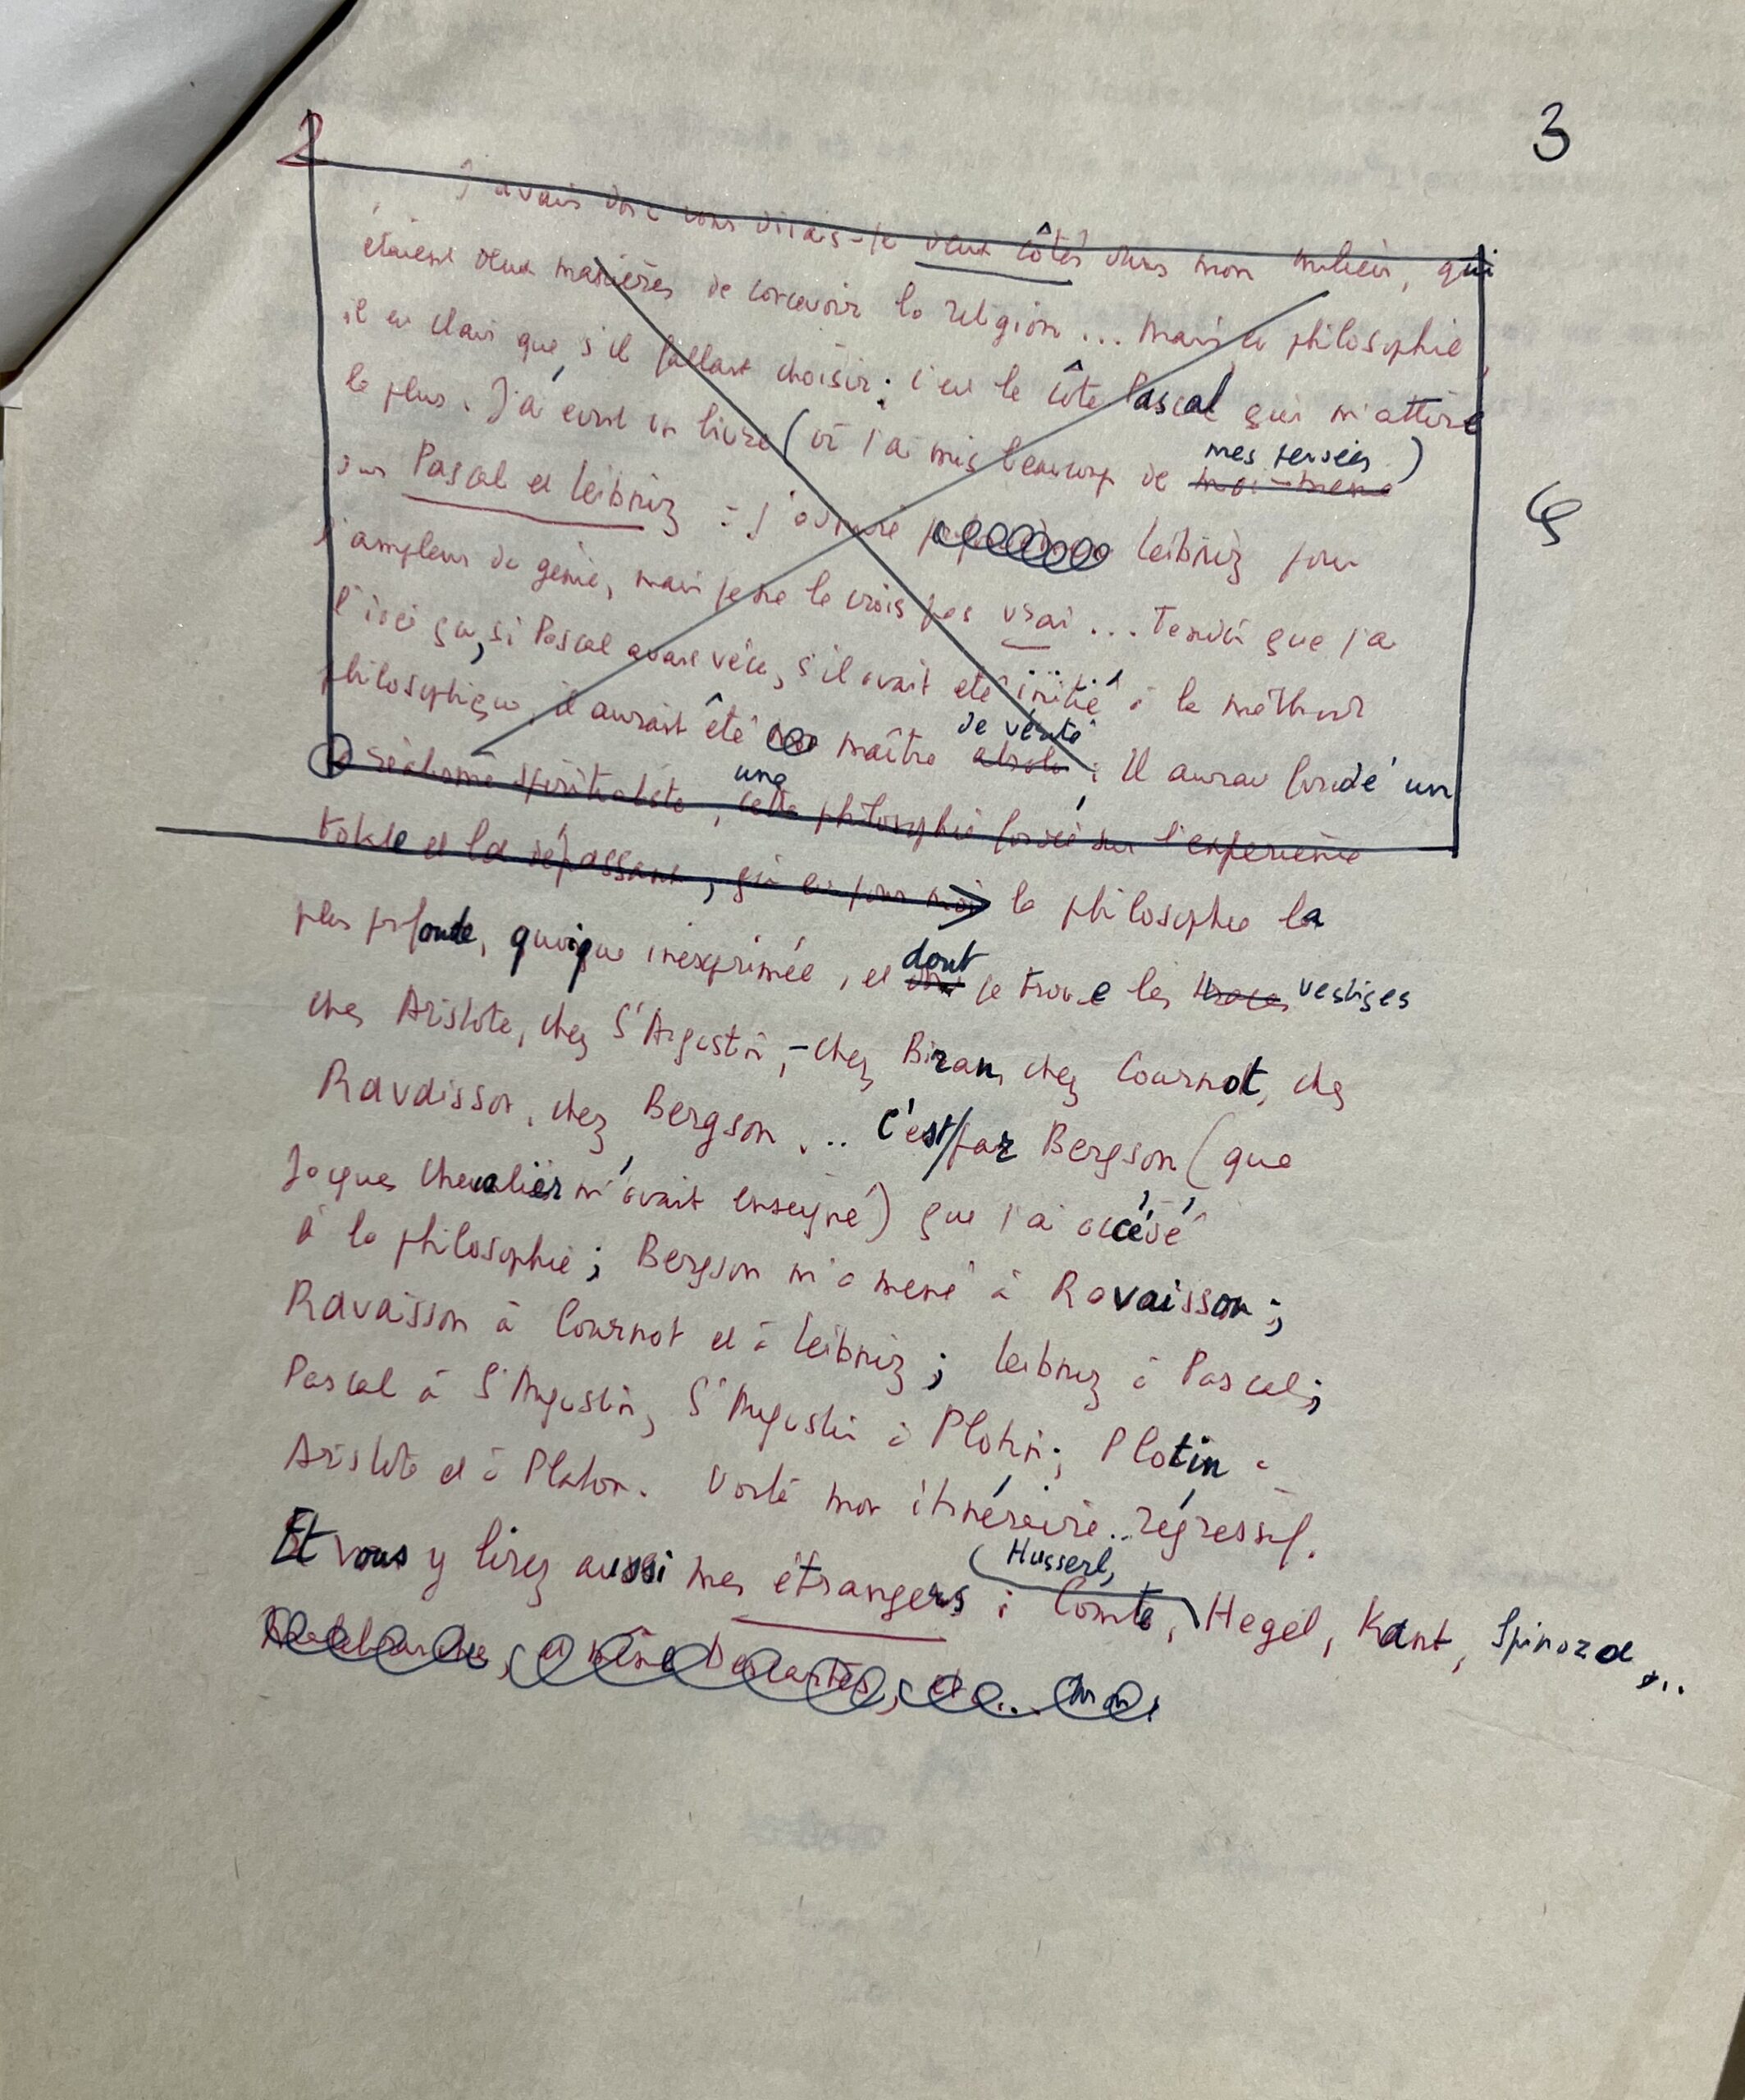 2
3
J'avais donc vous disais-je deux côtés dans mon milieu, qui
étaient deux manières de concevoir la religion... mais en philosophie
il est clair que, s'il fallait choisir : c'est le côté Pascal qui m'attire
mes pensées )
le plus. J'ai écrit un livre (où j'ai mis beaucoup de moi-même
sur Pascal et Leibniz : j'admire Leibniz pour
φ
l'ampleur du génie, mais je ne le crois pas vrai... Tandis que j'ai
l'idée que, si Pascal avait vécu, s'il avait été initié à la méthode
de vérité
philosophique, il aurait été maître absolu ; Il aurait fondé un
une
réalisme spiritualiste, cette philosophie fondée sur l'expérience
totale et la dépassant, qui est pour moi la philosophie la
dont
plus profonde, quoique inexprimée, et je trouve les traces vestiges
chez Aristote, chez St Augustin, - chez Biran, chez Cournot, chez
Ravaisson, chez Bergson... C'est par Bergson (que
Jacques Chevalier m'avait enseigné) que j'ai accédé
à la philosophie ; Bergson m'a mené à Ravaisson ;
Ravaisson à Cournot et à Leibniz ; Leibniz à Pascal ;
Pascal à St Augustin, St Augustin à Plotin ; Plotin à
Aristote et à Platon. Voilà mon itinéraire.. régressif.
Husserl,
Et vous y lirez aussi mes étrangers : Comte, Hegel, Kant, Spinoza...
Malebranche, et même Descartes, et...